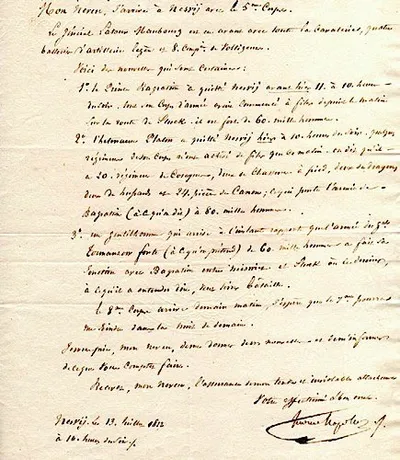 Mon neveu, j'arrive à Nesvij avec le 5me Corps.
Le Général Latour Maubourg est en avant avec toute la Cavalerie, quatre
batteries d'artillerie légère et 8. Compies de Voltigeurs.
Voici des nouvelles qui sont certaines:
1° le Prince Bagration a quitté Nesvij avant hier 11. à 10. heures
du soir. tout son Corps d'armée avait commencé à filer depuis le matin
sur la route de Slutsk. il est fort de 60. mille hommes.
2° l'hetmann Platow a quitté Nesvij hier à 10. heures du soir, quelques
régimens de son Corps n'ont achevé de filer que ce matin.
a 20. régimens de Cosaques, deux de Chasseurs à pied, deux de dragons,
deux de husards et 24. pièces de Canon; ce qui porte l'armée de
Bagration (à ce qu'on dit) à 80. mille hommes.
3° un gentilhomme qui arrive à l'instant rapporte que l'armée du gal
forte (à ce qu'on prétend) de 60. mille hommes a fait sa
jonction avec Bagration entre et Slutsk où ce dernier,
à ce qu'il a entendu dire, veut livrer bataille.
le 8me Corps arrive demain matin, j'espère que le 7me pourra
me joindre dans la nuit de demain.
mon neveu, de me donner de vos nouvelles et de m'informer
de ce que vous comptez faire.
Recevez, mon neveu, l'assurance de mon tendre et inviolable attachement
Votre affectionné oncle.
Nesvij le 13. Juillet 1812
à 10. heures du soir
Jérôme Napoléon